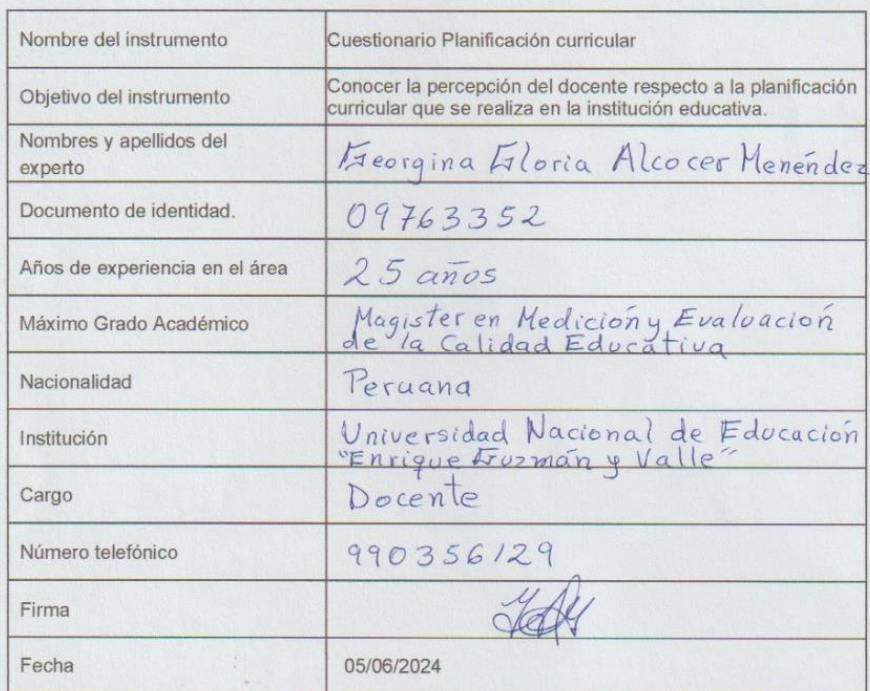 Nombre del instrumento
Cuestionario Planificación curricular
Objetivo del instrumento
Conocer la percepción del docente respecto a la planificación
curricular que se realiza en la institución educativa.
Nombres y apellidos del
experto
Georgina Gloria Alcocer Menéndez
Documento de identidad.
09763352
Años de experiencia en el área
25 años
Máximo Grado Académico
Magister en Medición y Evaluación
de la Calidad Educativa
Nacionalidad
Peruana
Institución
Universidad Nacional de Educación
"Enrique Guzmán y Valle"
Cargo
Docente
Número telefónico
990356129
Firma
Fecha
05/06/2024